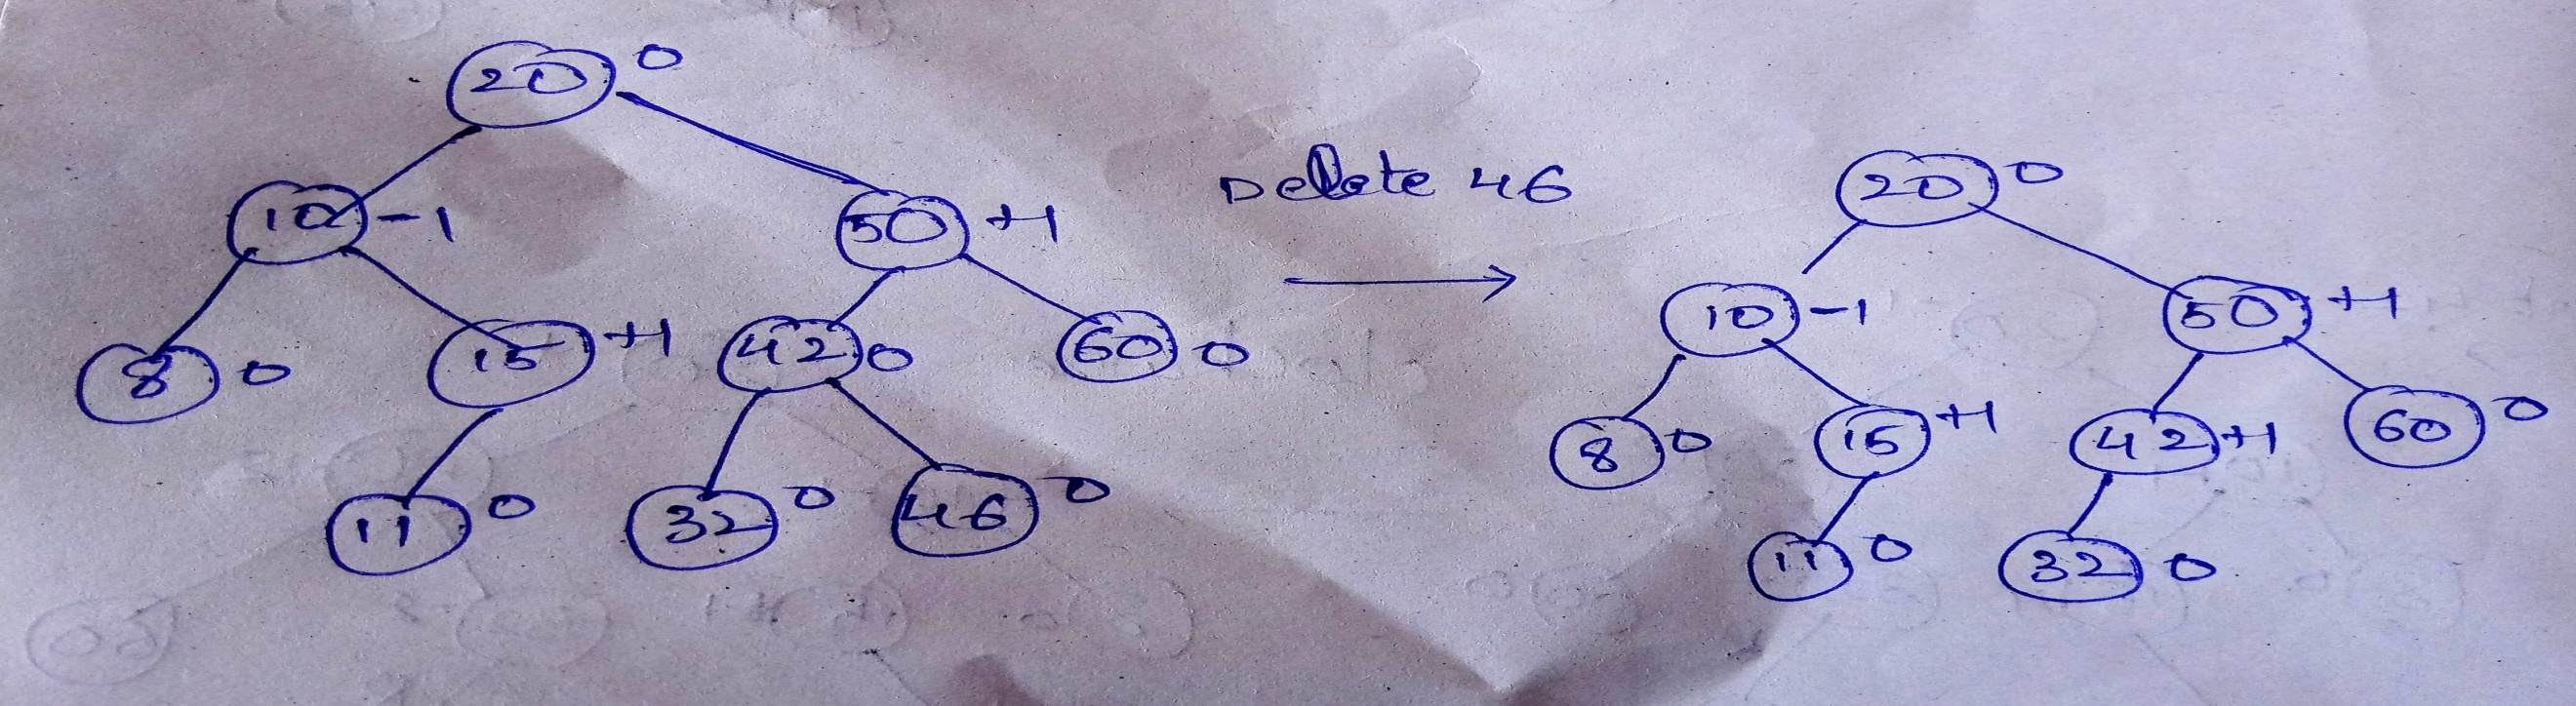 20 0
10 -1 50 +1
8 0 15 +1 42 0 60 0
11 0 32 0 46 0
Delete 46
20 0
10 -1 50 +1
8 0 15 +1 42 +1 60 0
11 0 32 0